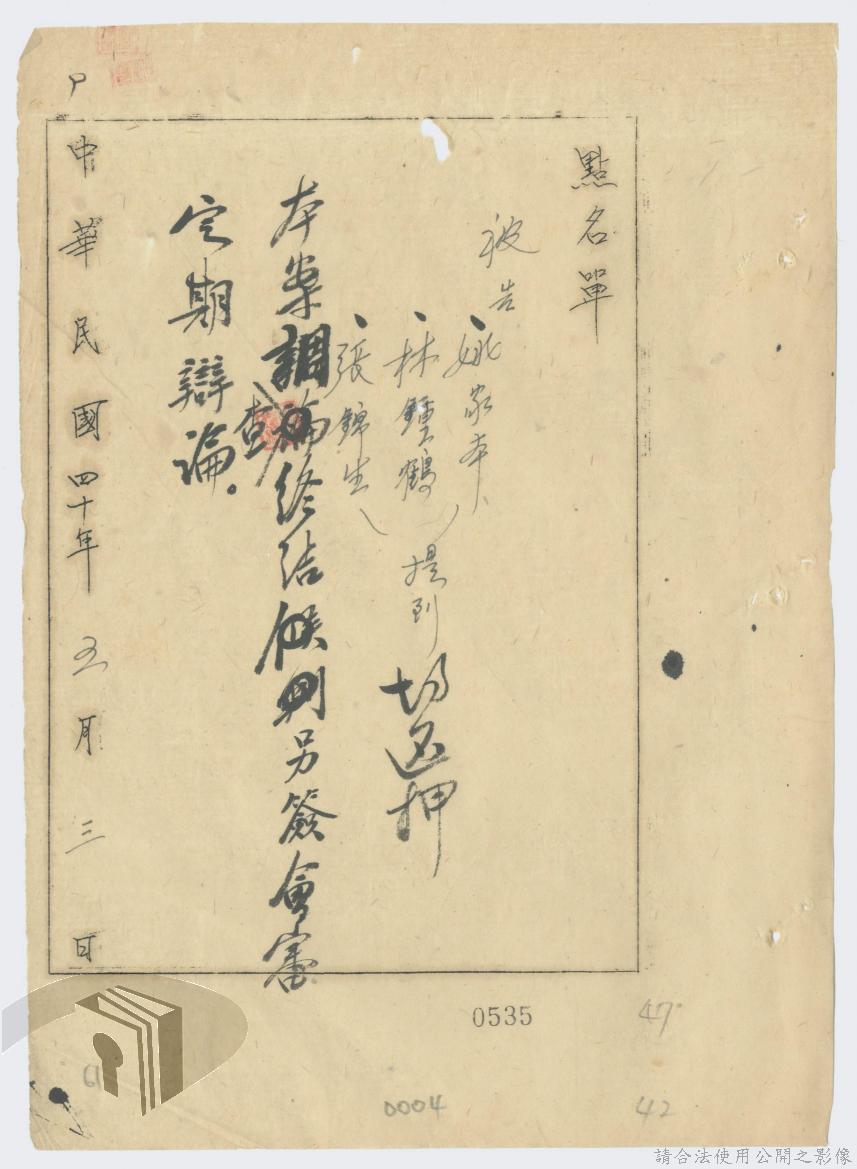 點名單
被告
姚家本
林鍾鶴
張錦生
提到 均還押
本案調查終結候判另簽會審
定期辯論。
中華民國四十年五月三日
0535
47
0004
42
61
請合法使用公開之影像